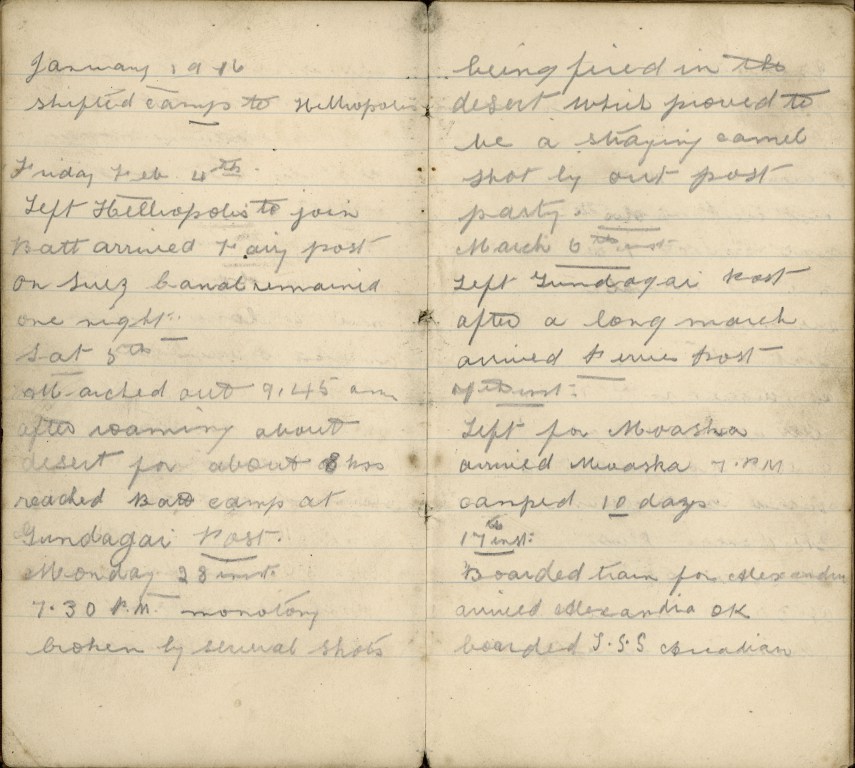 January 1916
shifted camps to Helliopolis
Friday Feb 4th
Left Helliopolis to join
Batt arrived Fairy post
on Suez Canal remained
one night.
Sat 5th
Marched out 9.45 am
after roaming about
desert for about 8 hrs
reached Batt camp at
Gundagai Post.
Monday 28 inst.
7.30 P.M. monotony
broken by several shots
being fired in the
desert which proved to
be a straying camel
shot by out post
party.
March 6th inst
Left Gundagai Post
after a long march
arrived Post
7th inst:
Left for Moaska
arrived Moaska 7.P.M
camped 10 days
17th inst:
Boarded train for Alexandria
arrived Alexandria OK
boarded S.S Arcadian